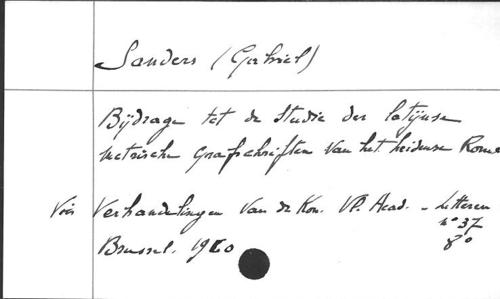 Sanders (Gabriel)
Bijdrage tot de studie der latijnse
metrische grafschriften van het heidense Rome
Voir Verhandelingen van de Kon. Vl. Acad. - Letteren
n° 37
Brussel. 1960 8°